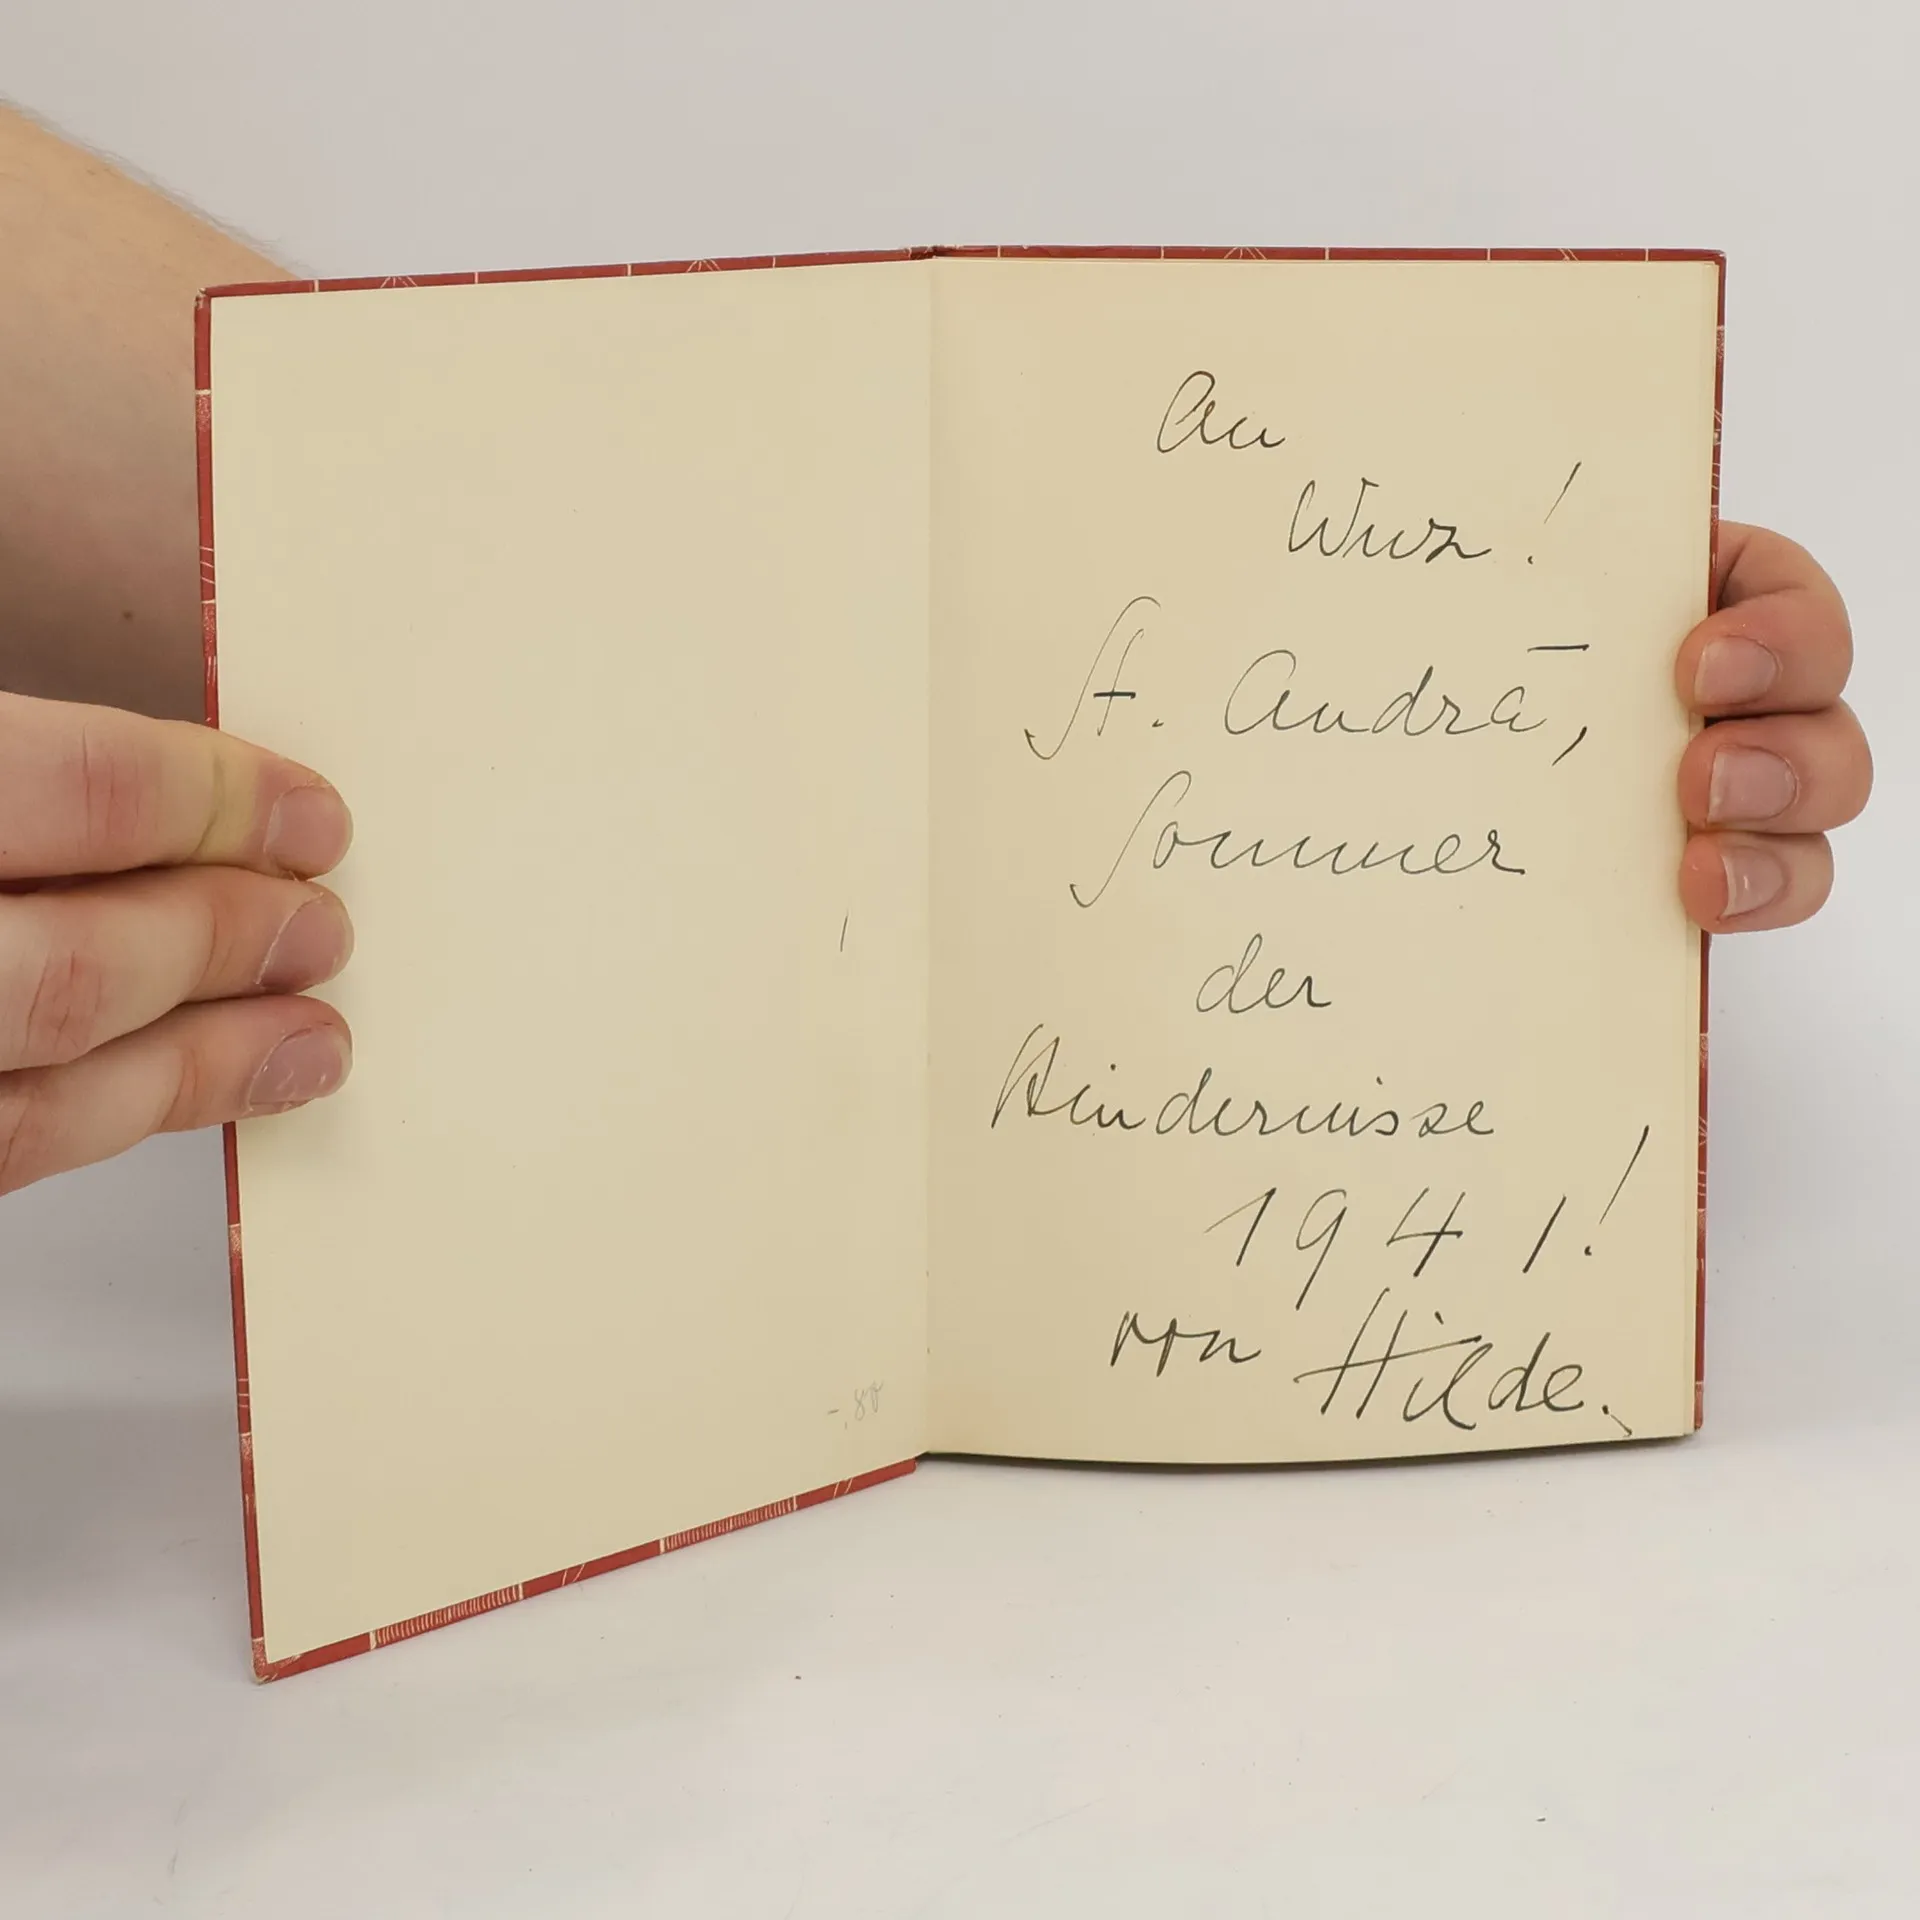 An
Wuz!
St. Andrä,
Sommer
der
Hindernisse
1941!
von Hilde.
-.80